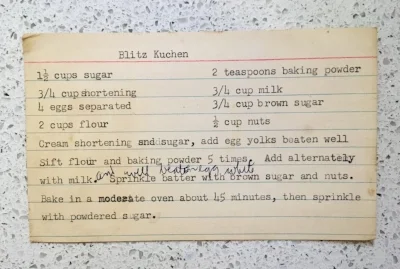 Blitz Kuchen
1½ cups sugar 2 teaspoons baking powder
3/4 cup shortening 3/4 cup milk
4 eggs separated 3/4 cup brown sugar
2 cups flour ½ cup nuts
Cream shortening and sugar, add egg yolks beaten well
Sift flour and baking powder 5 times. Add alternately
and well beaten egg whites
with milk. Sprinkle batter with brown sugar and nuts.
Bake in a moderate oven about 45 minutes, then sprinkle
with powdered sugar.